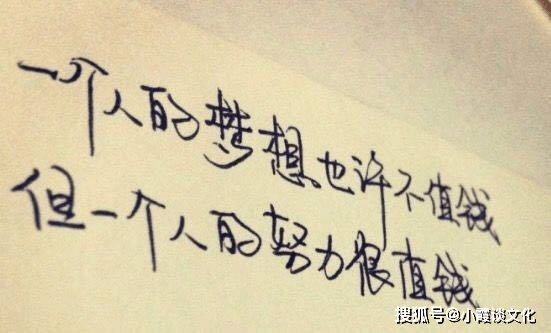 一个人的梦想也许不值钱
但一个人的努力很值钱
搜狐号@小霞谈文化